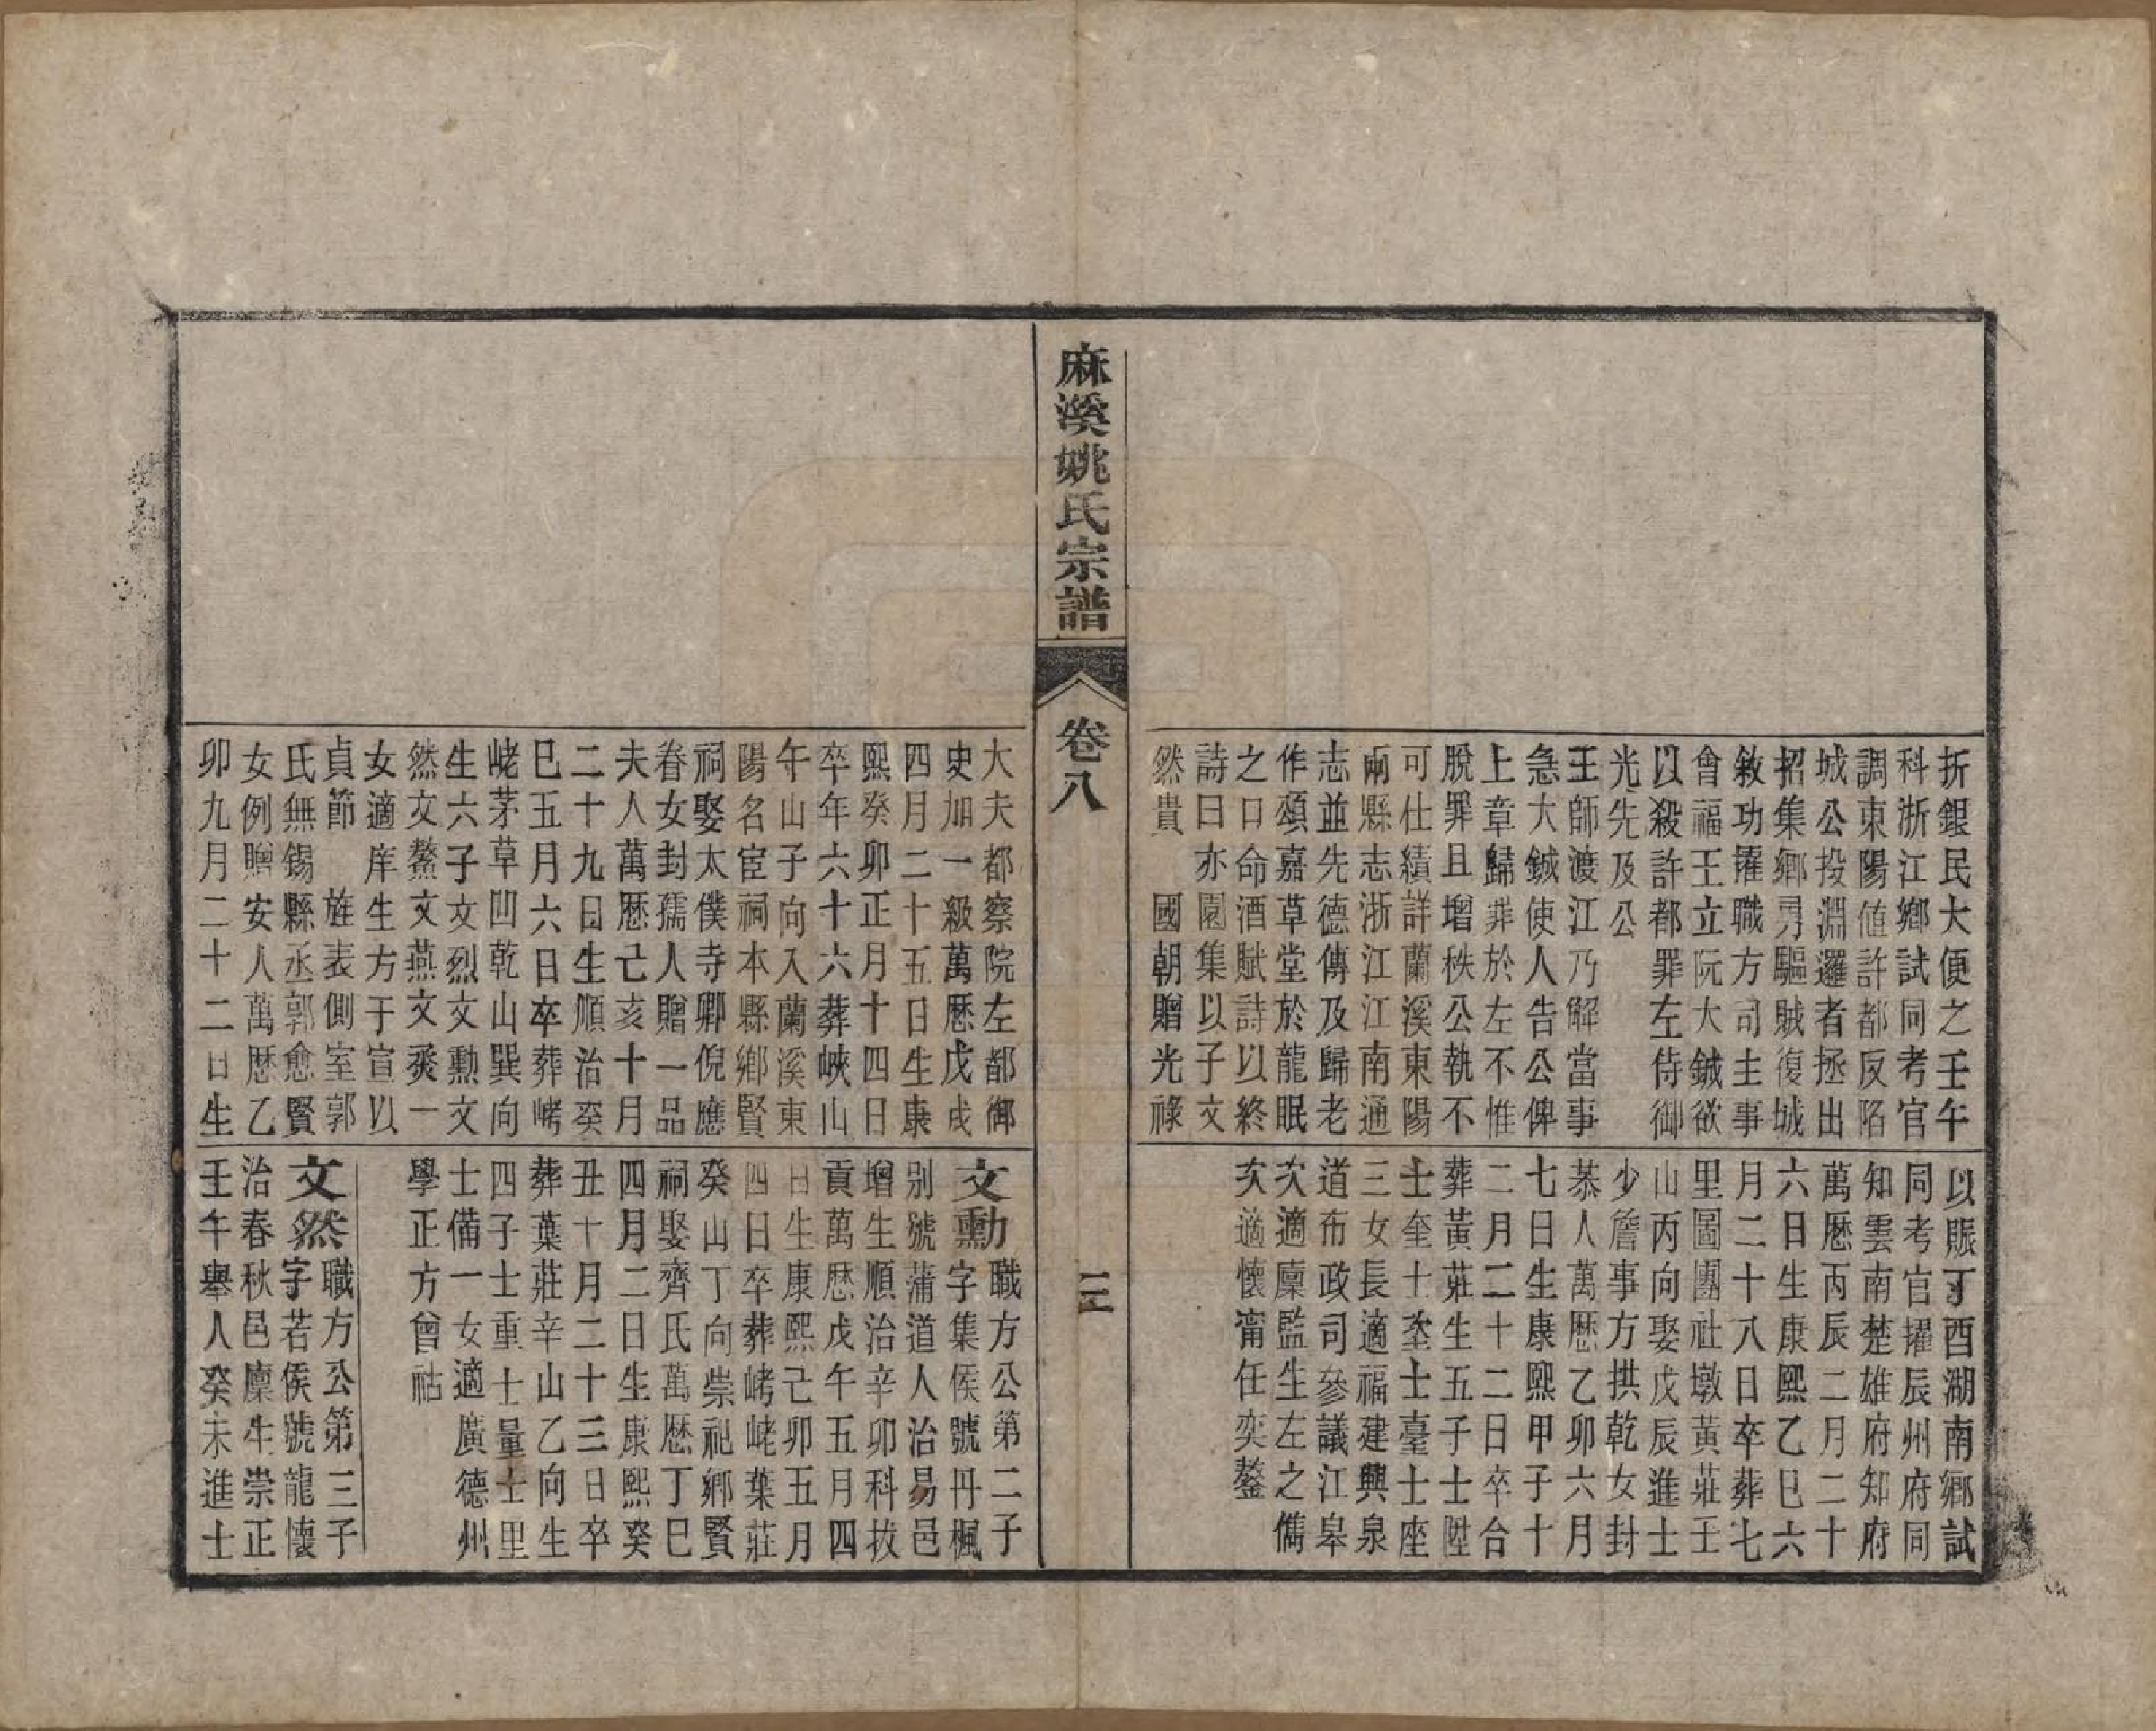 折銀民大便之壬午
科浙江鄉試同考官
調東陽值許都反陷
城公投淵邏者拯出
招集鄉勇驅賊復城
敘功擢職方司主事
會福王立阮大鋮欲
以殺許都罪左侍御
光先及公
王師渡江乃解當事
急大鋮使人告公俾
上章歸罪於左不惟
脫罪且增秩公執不
可仕績詳蘭溪東陽
兩縣志浙江江南通
志並先德傳及歸老
作頌嘉草堂於龍眠
之口命酒賦詩以終
詩曰亦園集以子文
然貴　國朝贈光祿
以賑丁酉湖南鄉試
同考官擢辰州府同
知雲南楚雄府知府
萬厯丙辰二月二十
六日生康熙乙巳六
月二十八日卒葬七
里圖團社墩黃莊壬
山丙向娶戊辰進士
少詹事方拱乾女封
恭人萬厯乙卯六月
七日生康熙甲子十
二月二十二日卒合
葬黃莊生五子士陞
士奎士垄士臺士座
三女長適福建興泉
道布政司參議江皋
次適廩監生左之儶
次適懷甯任奕鏊
麻溪姚氏宗譜
卷八
三
大夫都察院左都御
史加一級萬厯戊戌
四月二十五日生康
熙癸卯正月十四日
卒年六十六葬峽山
午山子向入蘭溪東
陽名宦祠本縣鄉賢
祠娶太僕寺卿倪應
眷女封孺人贈一品
夫人萬厯己亥十月
二十九日生順治癸
巳五月六日卒葬峿
峔茅草凹乾山巽向
生六子文烈文勳文
然文鰲文燕文烝一
女適庠生方于宣以
貞節　旌表側室郭
氏無錫縣丞郭愈賢
女例贈安人萬厯乙
卯九月二十二日生
文勳職方公第二子
字集侯號丹楓
別號蒲道人治易邑
增生順治辛卯科拔
貢萬厯戊午五月四
日生康熙己卯五月
四日卒葬峿峔葉莊
癸山丁向崇祀鄉賢
祠娶齊氏萬厯丁巳
四月二日生康熙癸
丑十月二十三日卒
葬葉莊辛山乙向生
四子士重士量士里
士備一女適廣德州
學正方曾祜
文然職方公第三子
字若侯號龍懷
治春秋邑廩生崇正
壬午舉人癸未進士